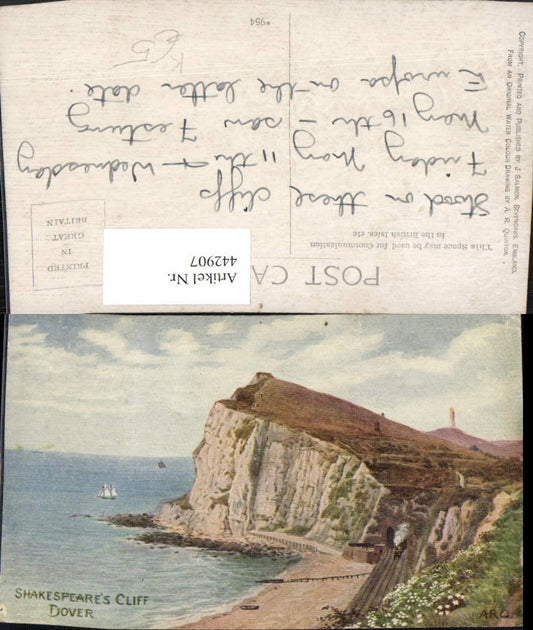 POST CA
This Space may be used for Communication
in the British Isles, etc
PRINTED
IN
GREAT
BRITAIN
Artikel Nr.
442907
Stood on these cliffs
Friday May 11th & Wednesday
May 16th - saw Festung
Europa on the latter date.
*954
COPYRIGHT. PRINTED AND PUBLISHED BY J. SALMON, SEVENOAKS, ENGLAND.
FROM AN ORIGINAL WATER COLOUR DRAWING BY A. R. QUINTON.
SHAKESPEARE'S CLIFF
DOVER
A.R.Q.